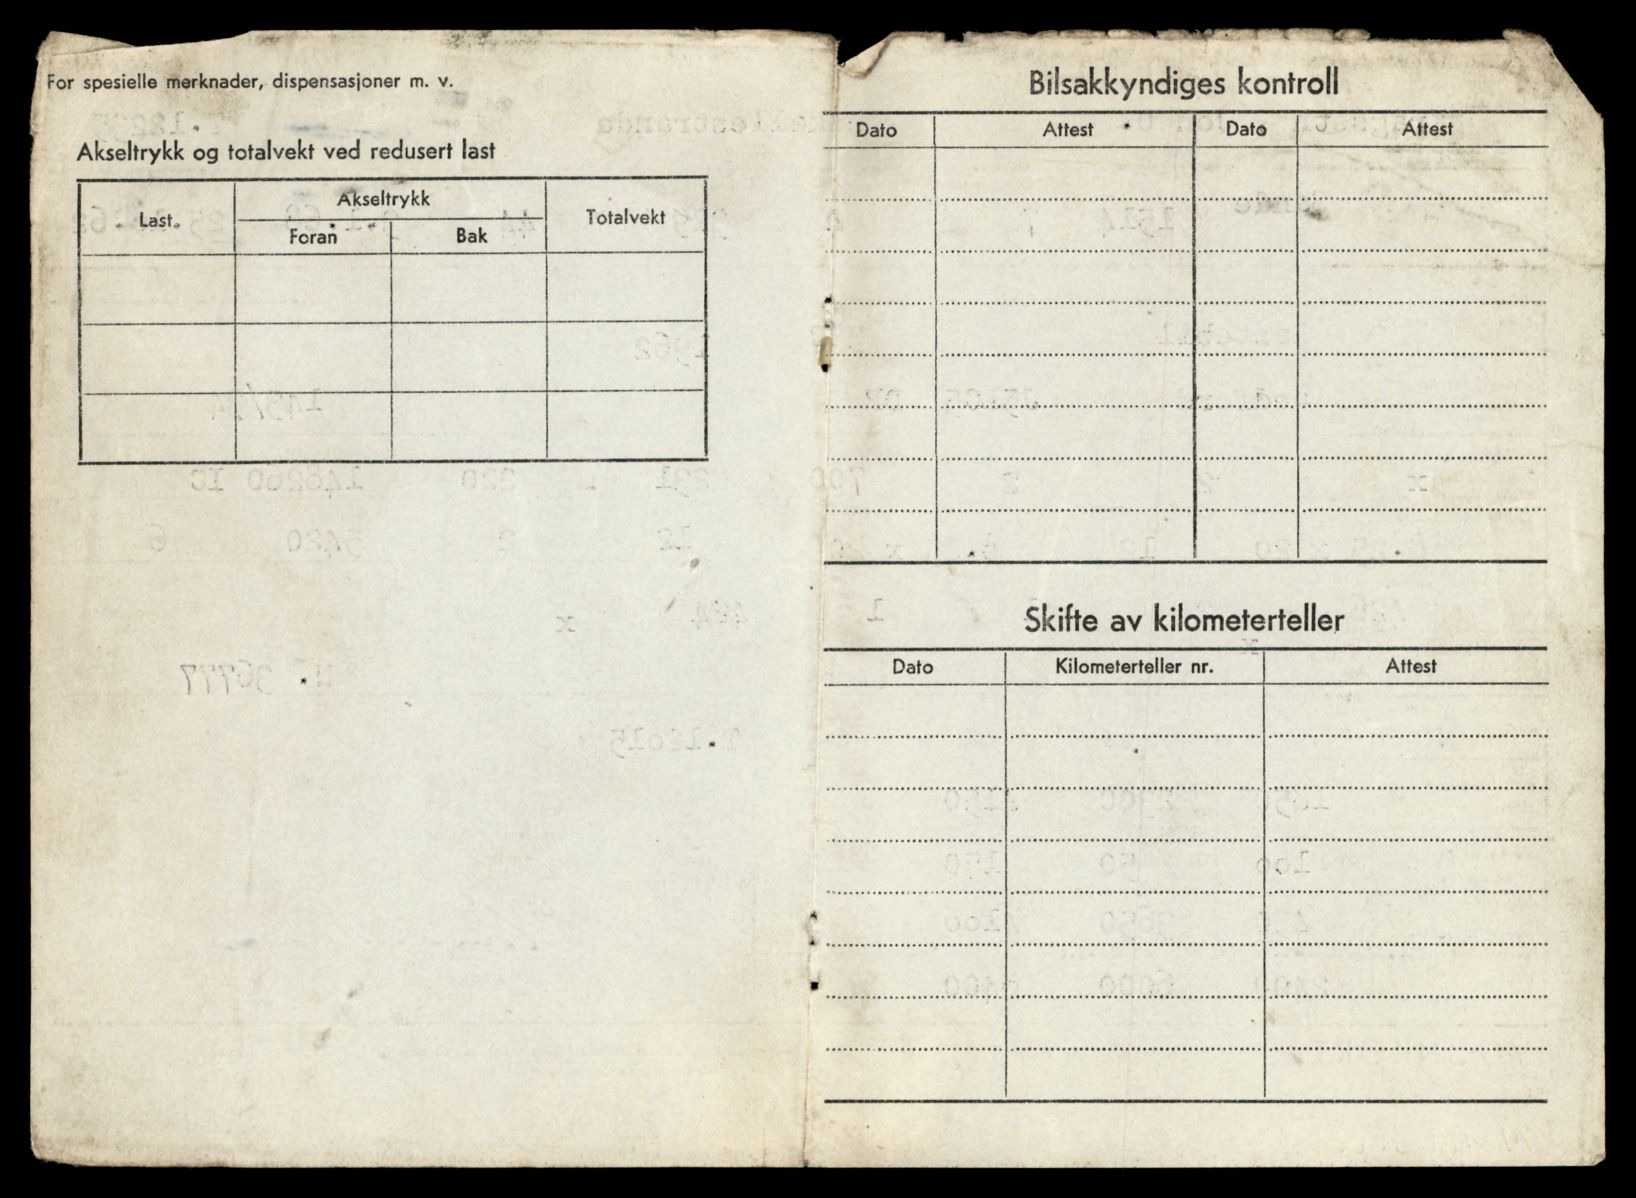 For spesielle merknader, dispensasjoner m. v.
Akseltrykk og totalvekt ved redusert last
Last
Akseltrykk
Totalvekt
Foran
Bak
Bilsakkyndiges kontroll
Dato
Attest
Dato
Attest
Skifte av kilometerteller
Dato
Kilometerteller nr.
Attest